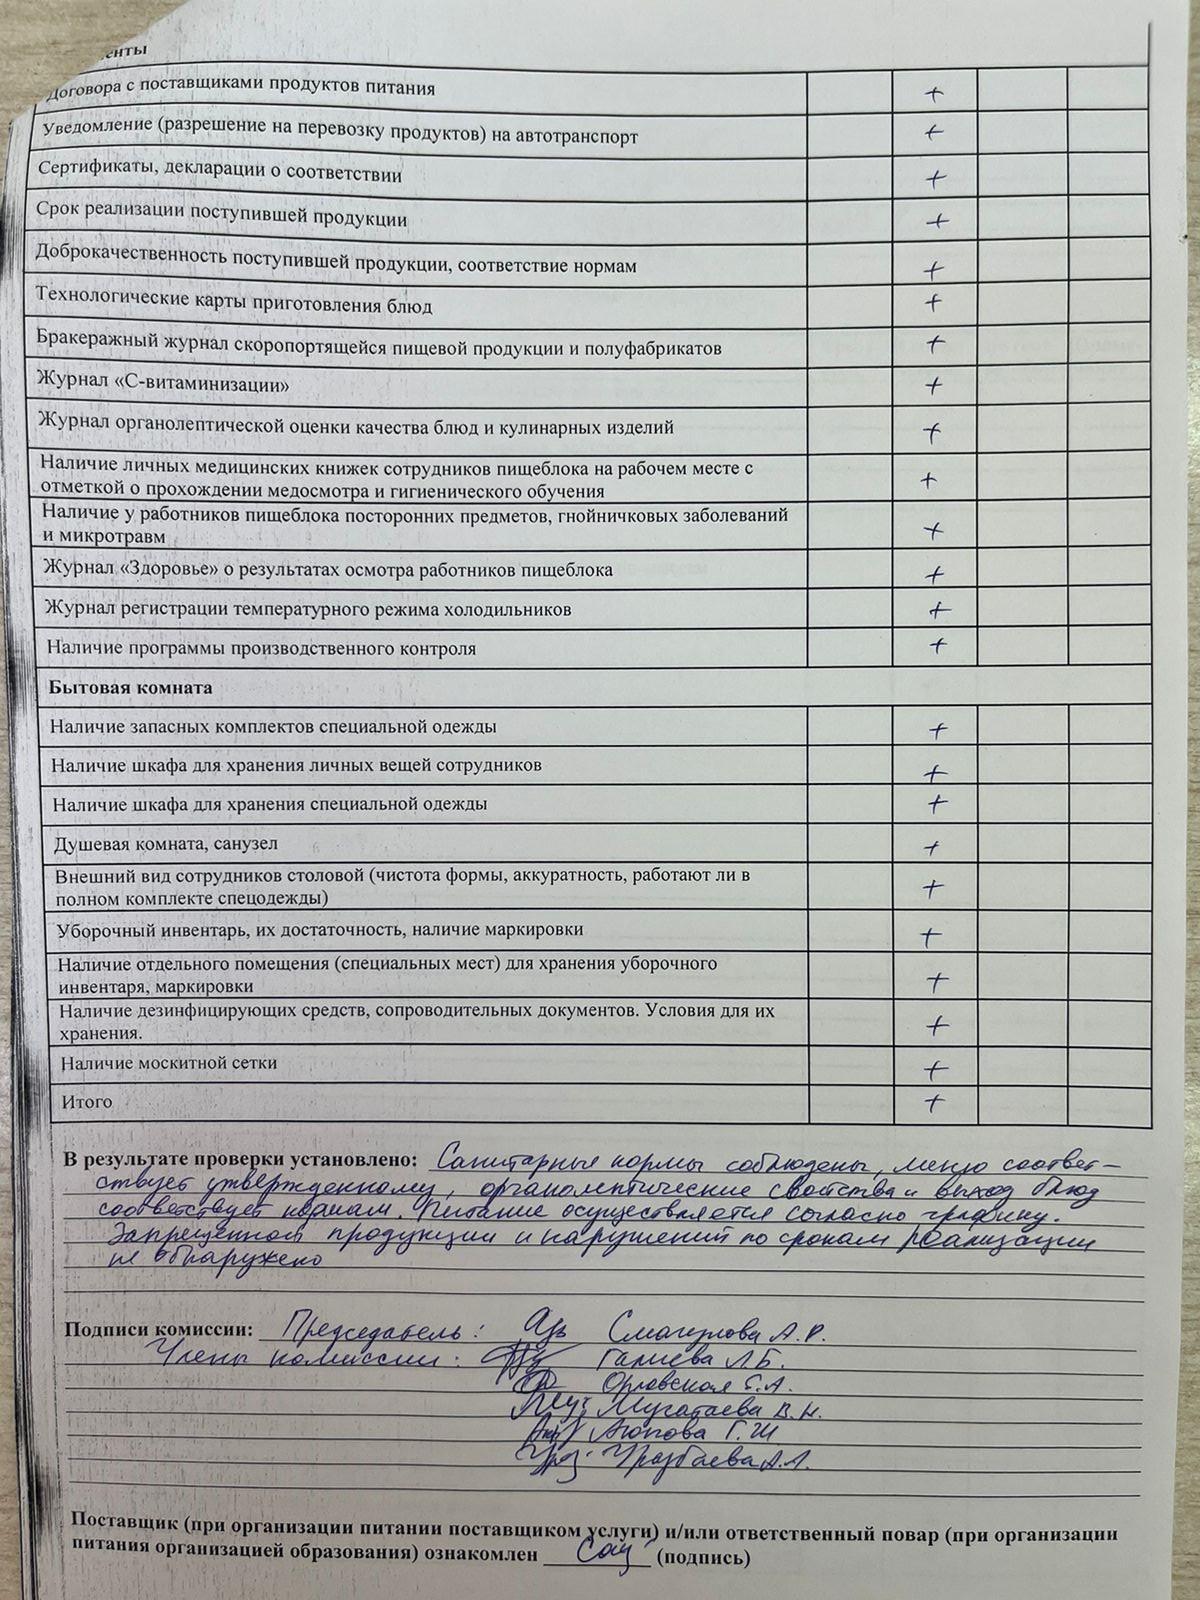 енты
Договора с поставщиками продуктов питания +
Уведомление (разрешение на перевозку продуктов) на автотранспорт +
Сертификаты, декларации о соответствии +
Срок реализации поступившей продукции +
Доброкачественность поступившей продукции, соответствие нормам +
Технологические карты приготовления блюд +
Бракеражный журнал скоропортящейся пищевой продукции и полуфабрикатов +
Журнал «С-витаминизации» +
Журнал органолептической оценки качества блюд и кулинарных изделий +
Наличие личных медицинских книжек сотрудников пищеблока на рабочем месте с
отметкой о прохождении медосмотра и гигиенического обучения +
Наличие у работников пищеблока посторонних предметов, гнойничковых заболеваний
и микротравм +
Журнал «Здоровье» о результатах осмотра работников пищеблока +
Журнал регистрации температурного режима холодильников +
Наличие программы производственного контроля +
Бытовая комната
Наличие запасных комплектов специальной одежды +
Наличие шкафа для хранения личных вещей сотрудников +
Наличие шкафа для хранения специальной одежды +
Душевая комната, санузел +
Внешний вид сотрудников столовой (чистота формы, аккуратность, работают ли в
полном комплекте спецодежды) +
Уборочный инвентарь, их достаточность, наличие маркировки +
Наличие отдельного помещения (специальных мест) для хранения уборочного
инвентаря, маркировки +
Наличие дезинфицирующих средств, сопроводительных документов. Условия для их
хранения. +
Наличие москитной сетки +
Итого +
В результате проверки установлено: Санитарные нормы соблюдены, меню соответ-
ствует утвержденному, органолептические свойства и выход блюд
соответствует нормам. Питание осуществляется согласно графику.
Запрещенной продукции и нарушений по срокам реализации
не обнаружено
Подписи комиссии: Председатель: Смагулова А.Р.
Члены комиссии: Галиева Л.Б.
Орловская Е.А.
Мусатаева В.Н.
Аюпова Г.Ш
Уразбаева А.А.
Поставщик (при организации питании поставщиком услуги) и/или ответственный повар (при организации
питания организацией образования) ознакомлен (подпись)